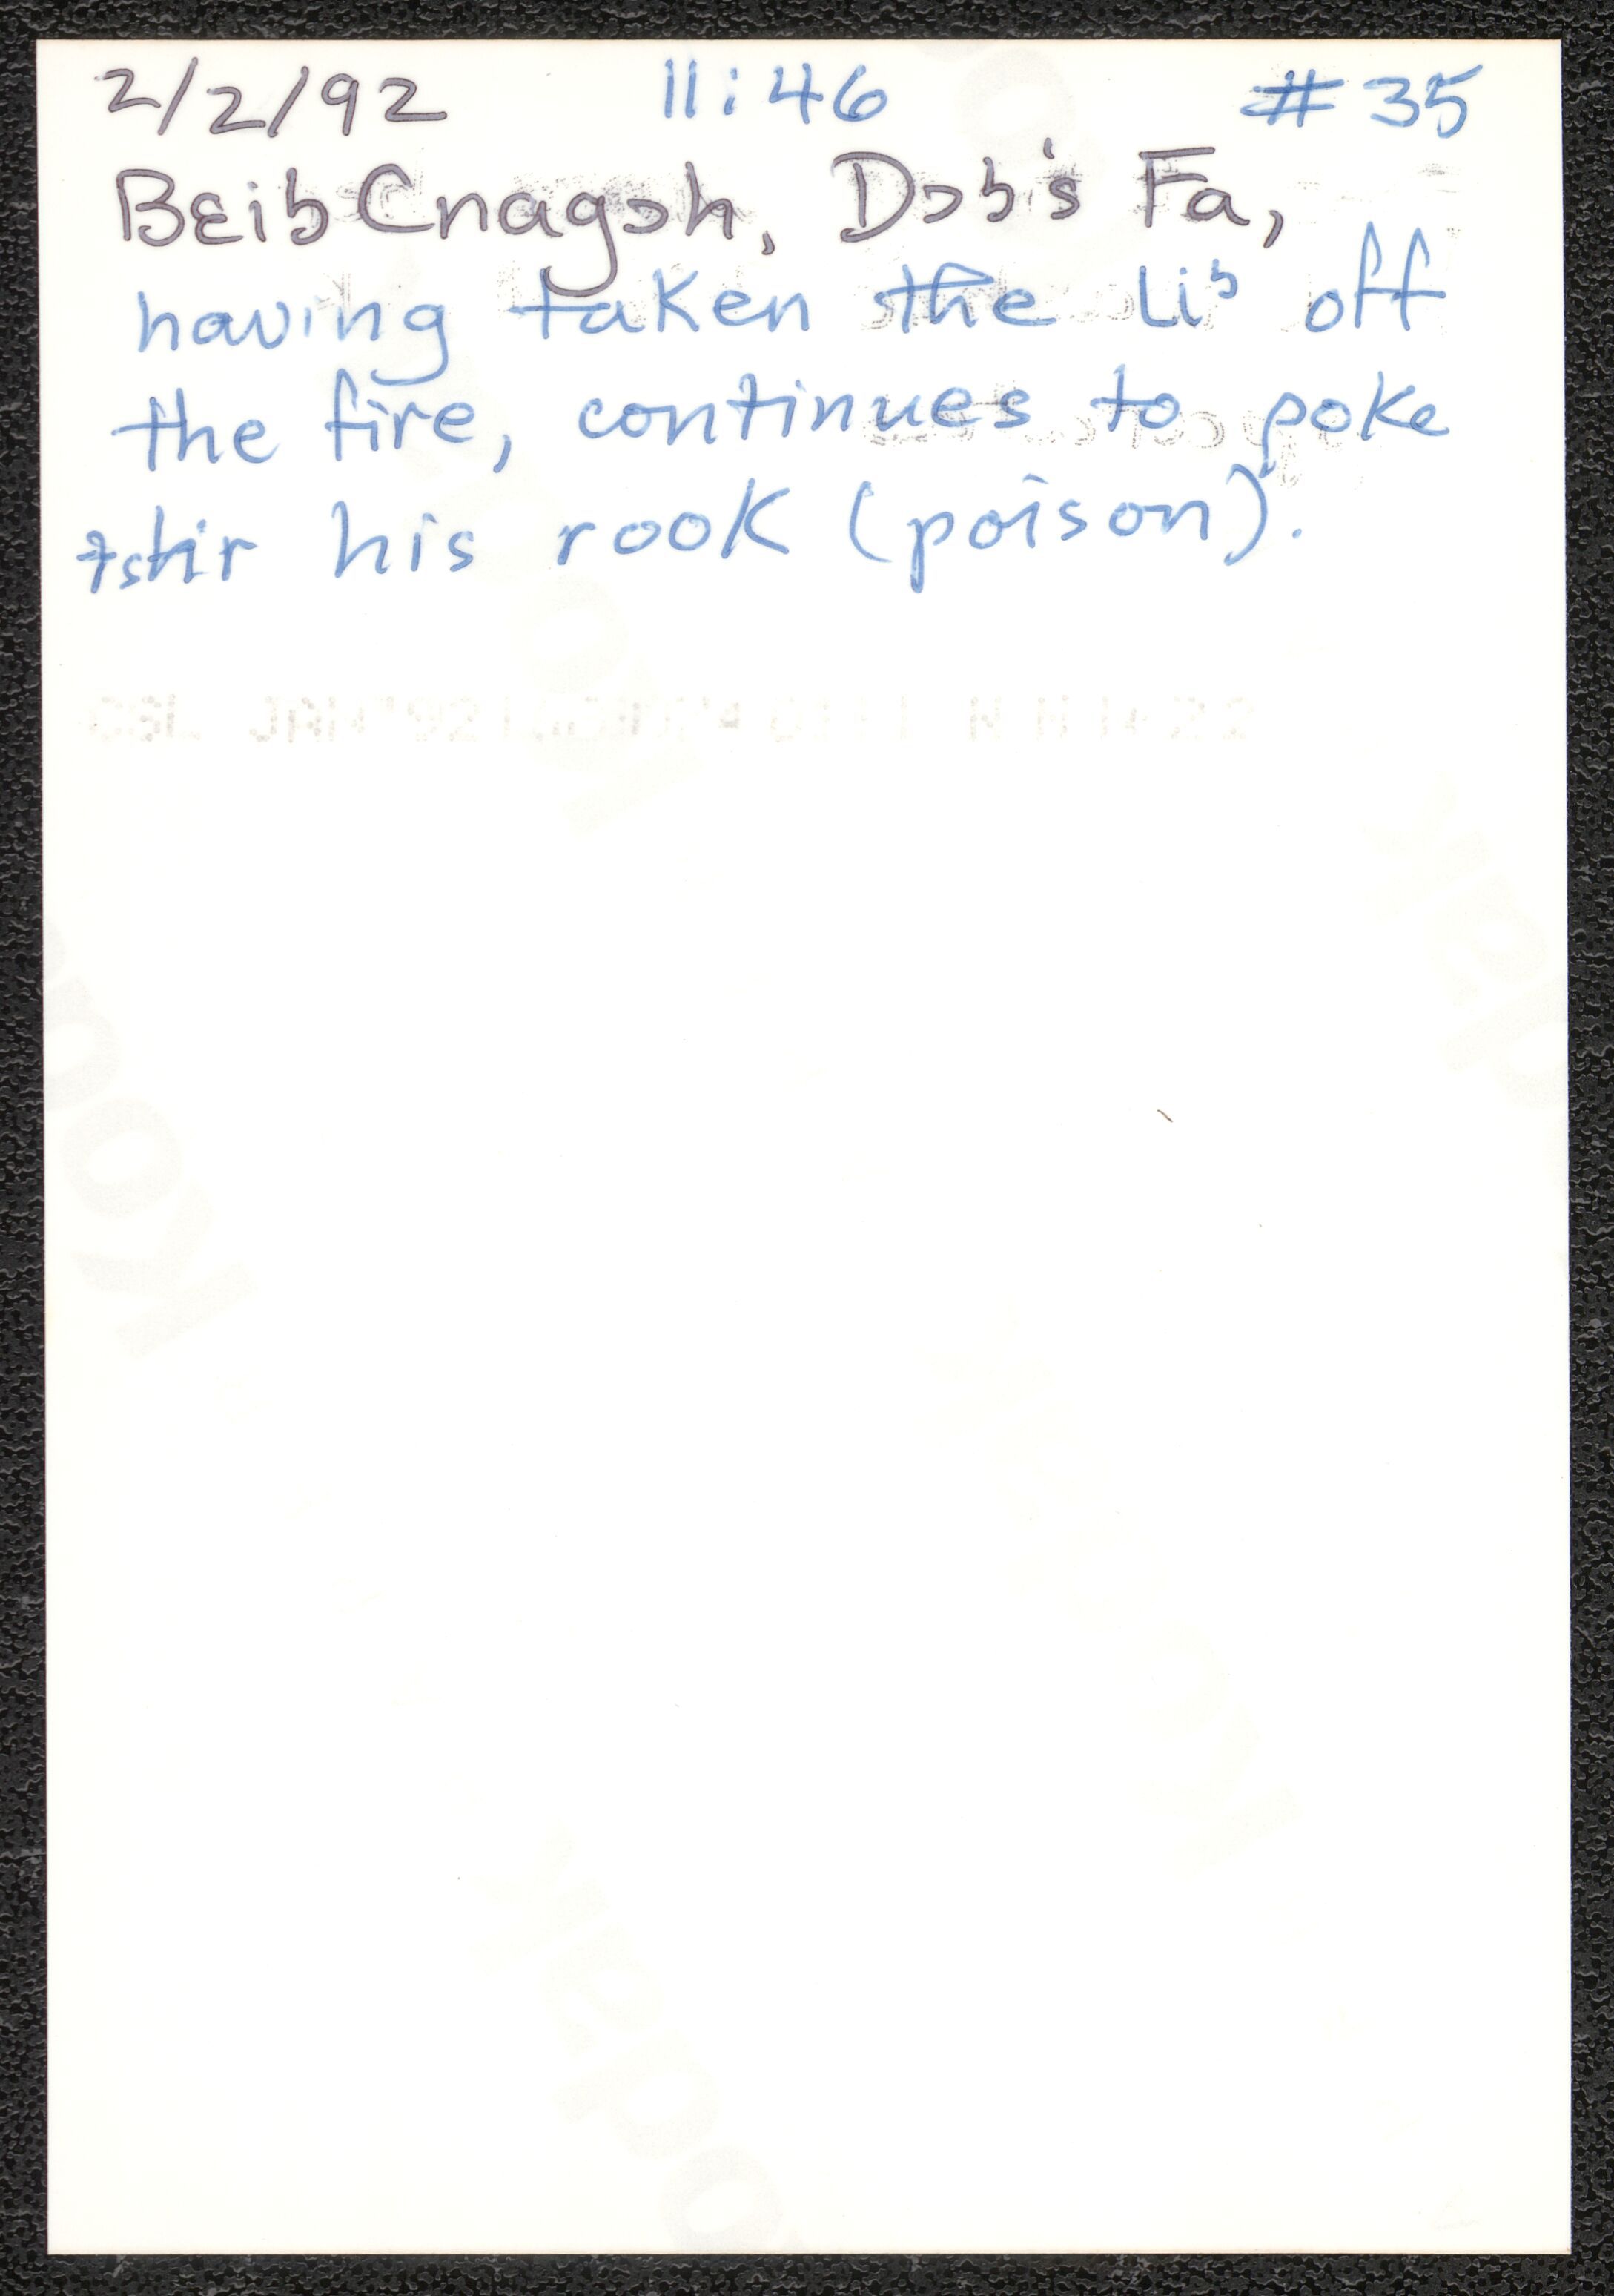 2/2/92 11:46 #35
Bɛib Cnagɔh, Dɔb's Fa,
having taken the lib off
the fire, continues to poke
+stir his rook (poison).